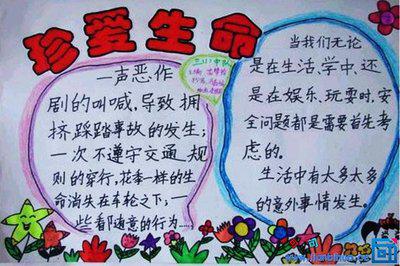 珍爱生命
一声恶作
剧的叫喊,导致拥
挤、踩踏事故的发生;
一次不遵守交通规
则的穿行,花季一样的生
命消失在车轮之下,一
些看随意的行为……
三(1)中队
当我们无论
是在生活、学中,还
是在娱乐、玩耍时,安
全问题都是需要首先考
虑的。
生活中有太多太多
的意外事情发生。